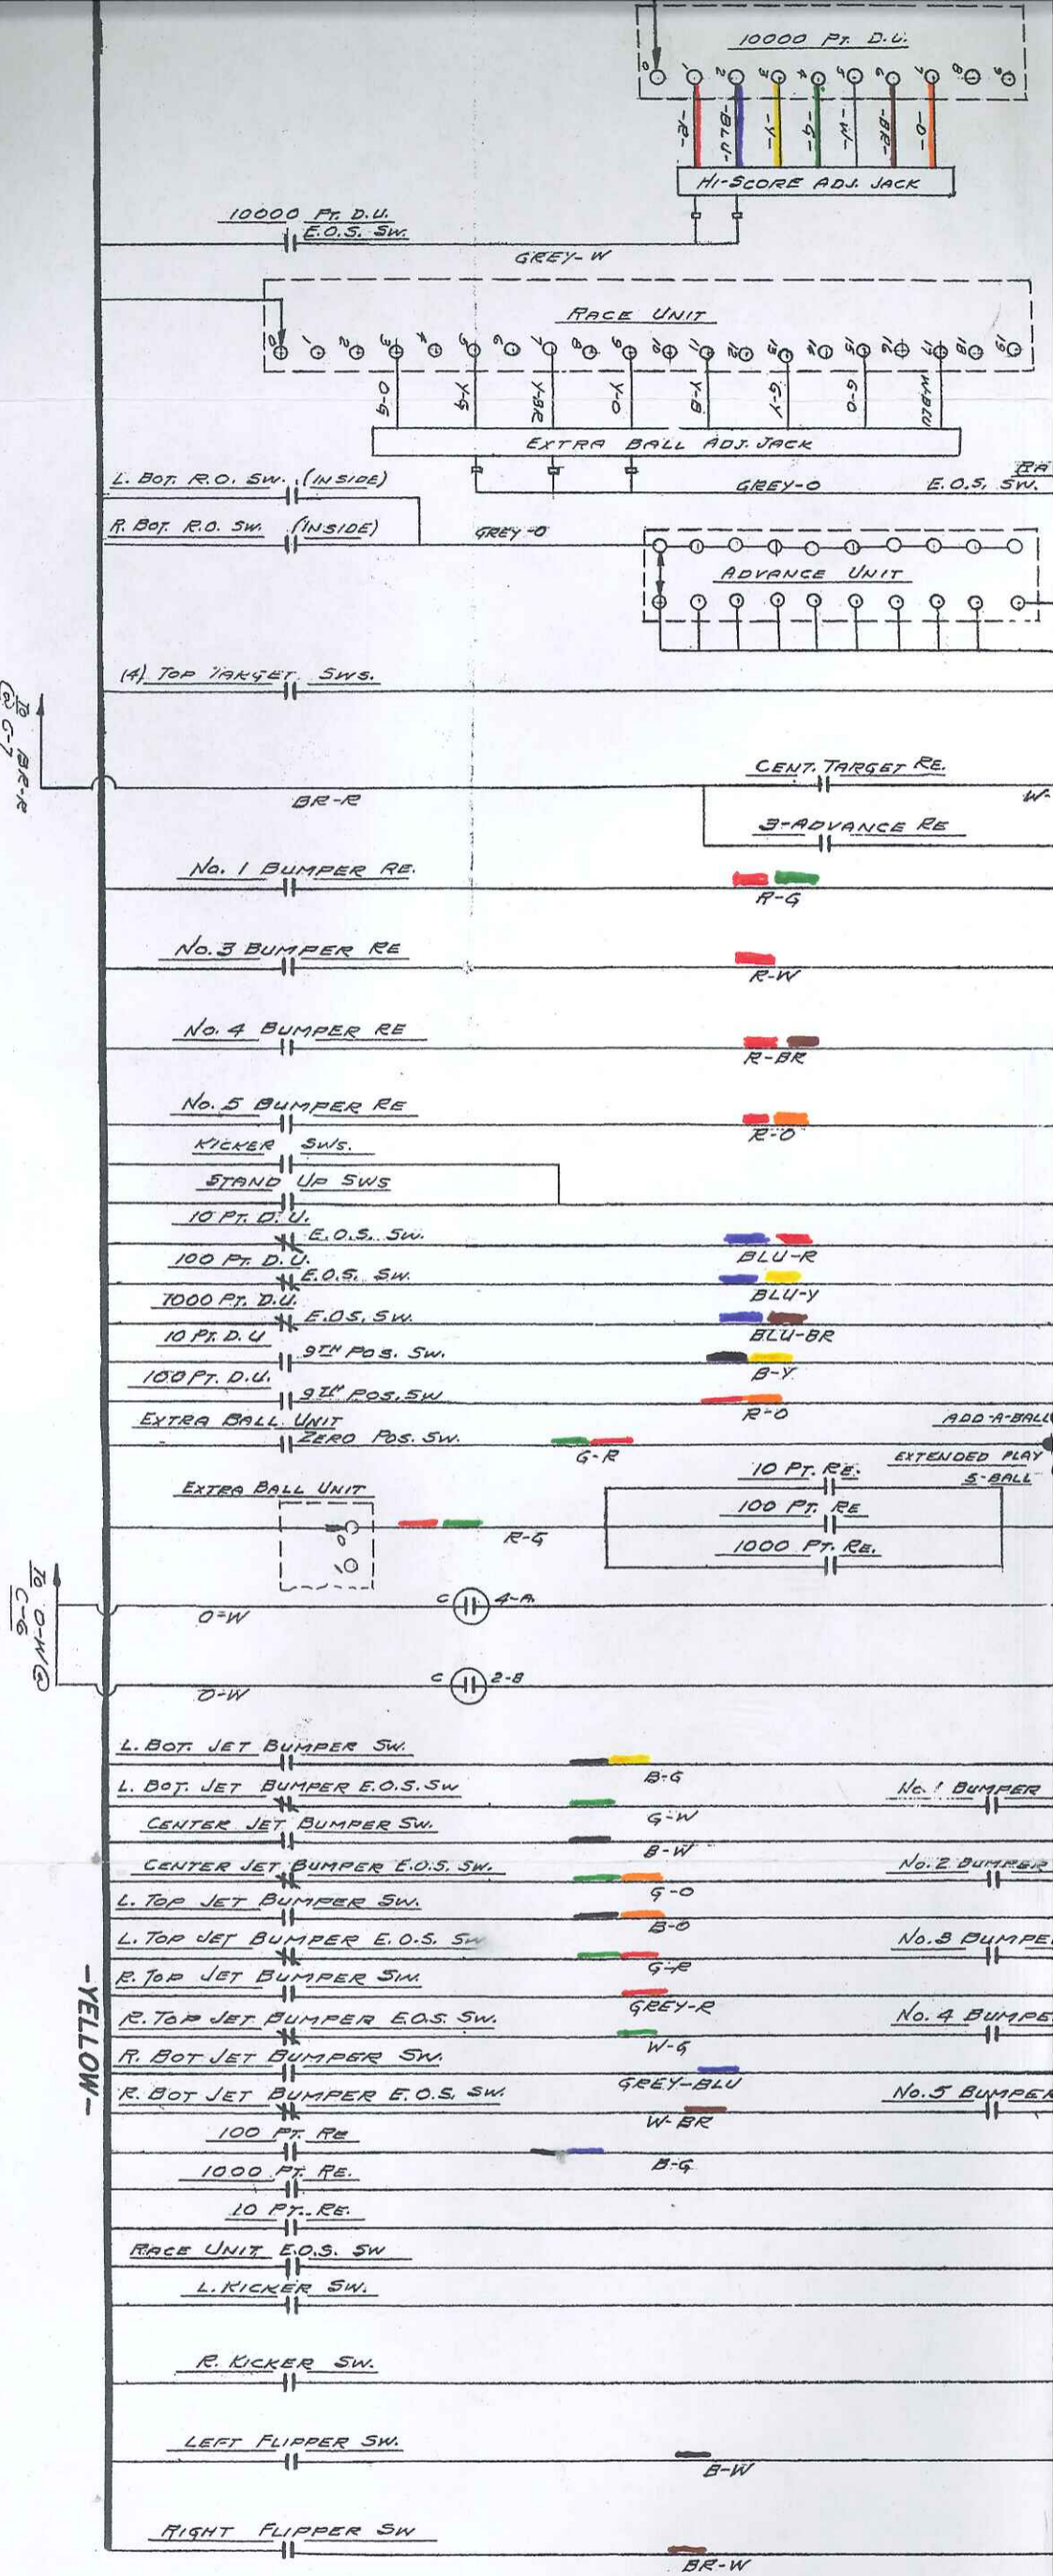 10000 PT. D.U.
0 1 2 3 4 5 6 7 8 9
-R- -BLU- -Y- -G- -W- -BR- -O-
HI-SCORE ADJ. JACK
10000 PT. D.U.
E.O.S. SW.
GREY-W
RACE UNIT
0 1 2 3 4 5 6 7 8 9 10 11 12 13 14 15 16 17 18 19
O-G Y-G Y-BR Y-O Y-B G-Y G-O W-BLU
EXTRA BALL ADJ. JACK
L. BOT. R.O. SW. (INSIDE)
RA
GREY-O E.O.S. SW.
R. BOT. R.O. SW. (INSIDE) GREY-O
ADVANCE UNIT
(4) TOP TARGET SWS.
TO BR-R
@ C-7
CENT. TARGET RE.
BR-R W-
3-ADVANCE RE
No. 1 BUMPER RE.
R-G
No. 3 BUMPER RE
R-W
No. 4 BUMPER RE
R-BR
No. 5 BUMPER RE
R-O
KICKER SWS.
STAND UP SWS
10 PT. D.U.
E.O.S. SW.
BLU-R
100 PT. D.U.
E.O.S. SW.
BLU-Y
1000 PT. D.U.
E.O.S. SW.
BLU-BR
10 PT. D.U
9TH POS. SW.
B-Y
100 PT. D.U.
9TH POS. SW
R-O
EXTRA BALL UNIT
ZERO POS. SW.
G-R
ADD-A-BALL
EXTENDED PLAY
5-BALL
10 PT. RE.
EXTRA BALL UNIT
100 PT. RE
0
R-G
1000 PT. RE.
1
TO O-W @
C-6
O-W C 4-A
O-W C 2-B
L. BOT. JET BUMPER SW.
B-G
L. BOT. JET BUMPER E.O.S. SW No. 1 BUMPER
G-W
CENTER JET BUMPER SW.
B-W
CENTER JET BUMPER E.O.S. SW. No. 2 BUMPER
G-O
L. TOP JET BUMPER SW.
B-O
L. TOP JET BUMPER E.O.S. SW No. 3 BUMPE
G-R
R. TOP JET BUMPER SW.
GREY-R
R. TOP JET BUMPER E.O.S. SW. No. 4 BUMPE
W-G
R. BOT JET BUMPER SW.
GREY-BLU
R. BOT JET BUMPER E.O.S. SW. No. 5 BUMPER
W-BR
100 PT. RE
B-G
1000 PT. RE.
10 PT. RE.
RACE UNIT E.O.S. SW
L. KICKER SW.
R. KICKER SW.
LEFT FLIPPER SW.
B-W
RIGHT FLIPPER SW
BR-W
-YELLOW-